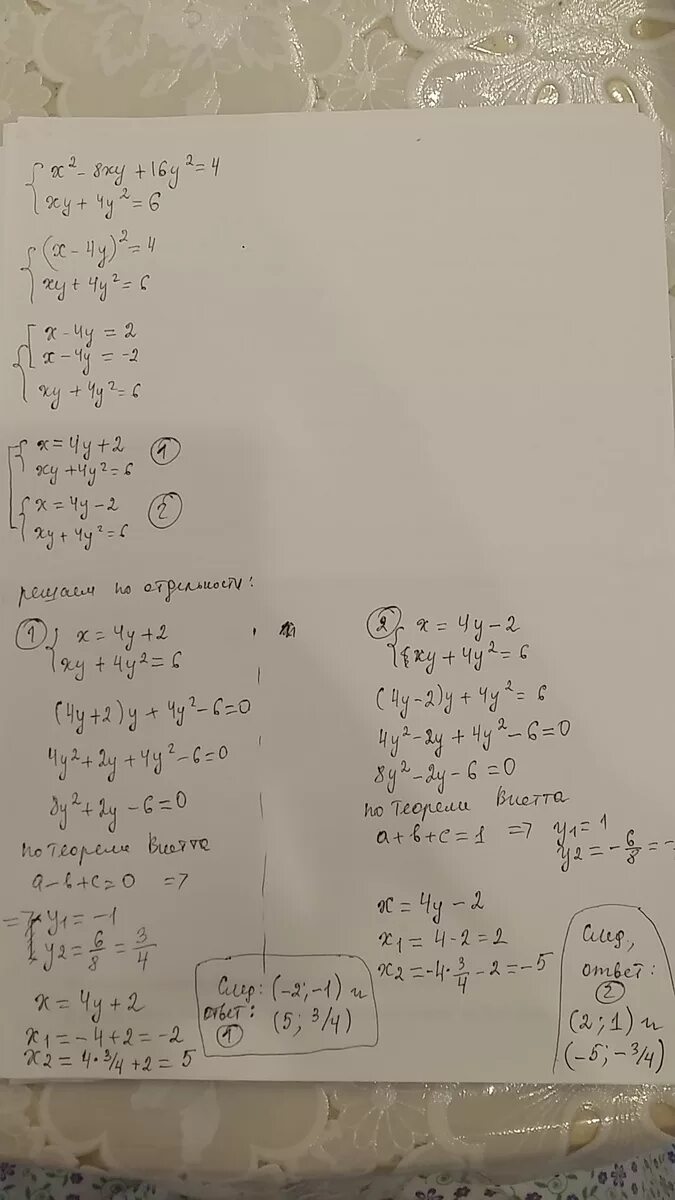 x² - 8xy + 16y² = 4
xy + 4y² = 6
(x - 4y)² = 4
xy + 4y² = 6
x - 4y = 2
x - 4y = -2
xy + 4y² = 6
x = 4y + 2
xy + 4y² = 6
1
x = 4y - 2
xy + 4y² = 6
2
решаем по отдельности:
1 x = 4y + 2
xy + 4y² = 6
(4y+2)y + 4y² - 6 = 0
4y² + 2y + 4y² - 6 = 0
8y² + 2y - 6 = 0
по теореми Виетта
a - b + c = 0 =>
=> y₁ = -1
y₂ = 6/8 = 3/4
x = 4y + 2
x₁ = -4 + 2 = -2
x₂ = 4·3/4 + 2 = 5
След: (-2; -1) и
ответ: (5; 3/4)
1
2 x = 4y - 2
xy + 4y² = 6
(4y-2)y + 4y² = 6
4y² - 2y + 4y² - 6 = 0
8y² - 2y - 6 = 0
по теореми Виетта
a + b + c = 1 => y₁ = 1
y₂ = -6/8 = -
x = 4y - 2
x₁ = 4 - 2 = 2
x₂ = -4·3/4 - 2 = -5
След,
ответ:
2
(2; 1) и
(-5; -3/4)